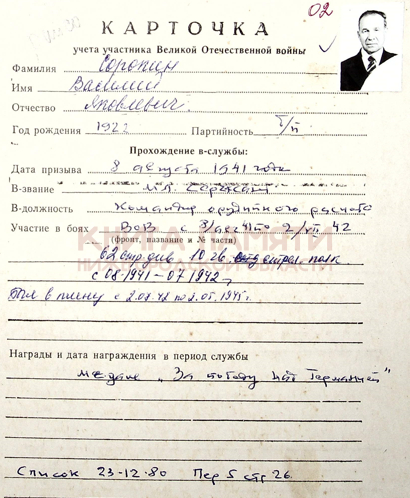 02
КАРТОЧКА
учета участника Великой Отечественной войны
Фамилия Сорокин
Имя Василий
Отчество Яковлевич.
Год рождения 1922 Партийность б/п
Прохождение в службы:
Дата призыва 8 августа 1941 года
В-звание мл. сержант
В-должность Командир орудийного расчета
Участие в боях ВОВ с 2/VII 42
(фронт, название и № части)
КНИГА ПАМЯТИ
НИЖЕГОРОДСКОЙ ОБЛАСТИ
62 стр. див. 10 стрел. полк
с 08.1941-07.1942,
был в плену с 2.07.42 по 2.05.1945 г.
Награды и дата награждения в период службы
медаль „За победу над Германией"
Список 23-12-80 Пер 5 стр 26.